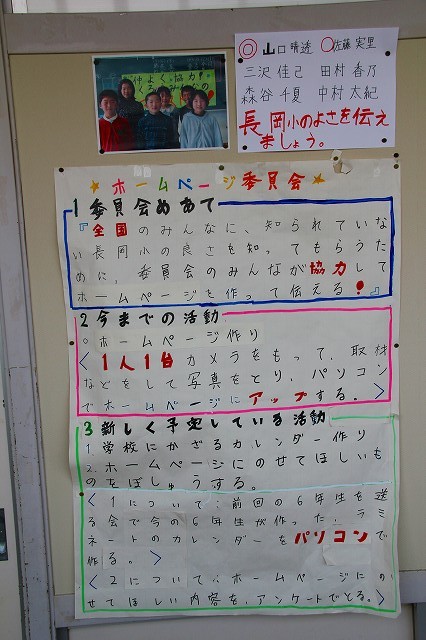 仲よく協力す
◎山口晴透 ○佐藤実里
三沢佳己 田村香乃
森谷千夏 中村太紀
長岡小のよさを伝え
ましょう。
★ホームページ委員会★
1 委員会めあて
『全国のみんなに、知られていな
い長岡小の良さを知ってもらうた
めに、委員会のみんなが協力して
ホームページを作って伝える!』
2 今までの活動
○ホームページ作り
<1人1台カメラをもって、取材
などをして写真をとり、パソコン
でホームページにアップする。>
3 新しく予定している活動
1.学校にかざるカレンダー作り
2.ホームページにのせてほしいも
のをぼしゅうする。
<1について…前回の6年生を送
る会で今の6年生が作った、ラミ
ネートのカレンダーをパソコンで
作る。>
<2について…ホームページにの
せてほしい内容を、アンケートでとる。>